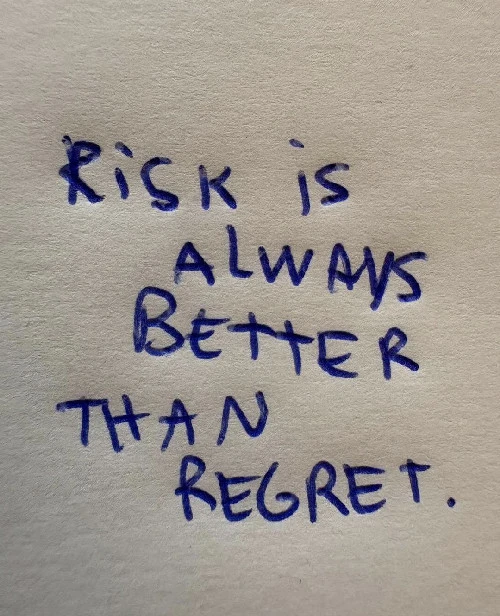 RiSK is
ALWAYS
BEttER
THAN
REGRET.